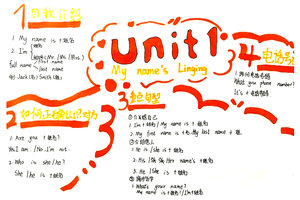 1 自我介绍
1. My name is +姓名
2. I'm
full name
first name
last name
例: Jack(名) Smith(姓)
unit 1
My name's Linging
2 如何正确认识对方
1. Are you +姓名?
Yes I am. / No. I'm not.
2. Who is she/he?
She/he is +姓名
3 重点句型
①介绍自己
1. I'm +姓名 / My name is +姓名
2. My first name is +名. My last name + 姓.
②介绍他人
1. He is /she is +姓名
2. His name is +姓名
3. He /She is
1. What's your name?
My name is +姓名! /I'm +姓名
4 电话号
What you phone number?
It's + 电话号码